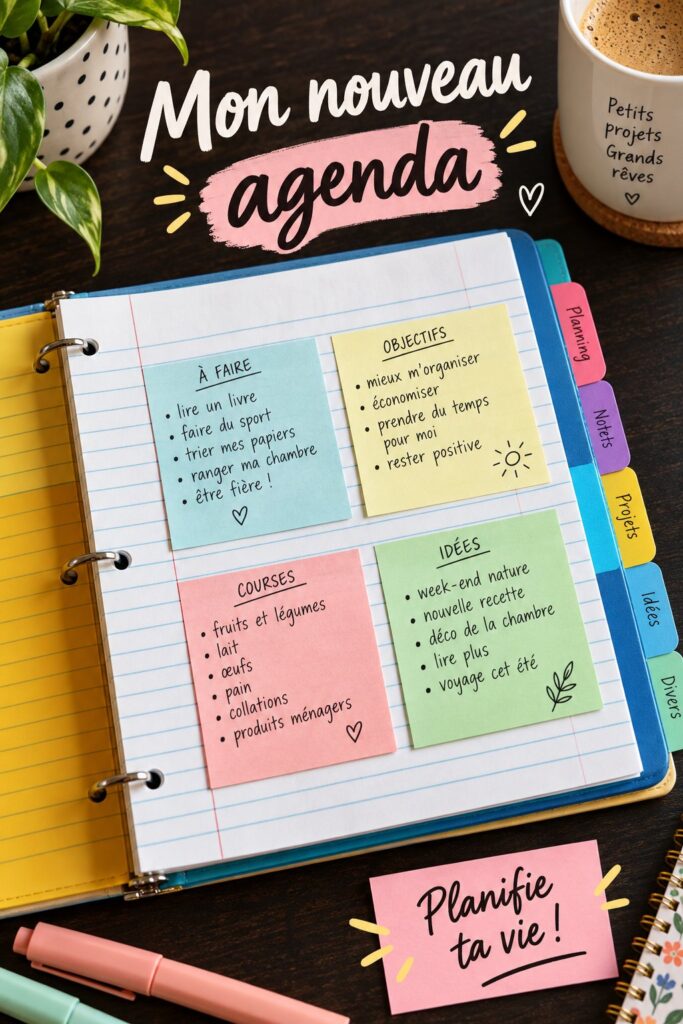 Mon nouveau
agenda
Petits
projets
Grands
rêves
À FAIRE
• lire un livre
• faire du sport
• trier mes papiers
• ranger ma chambre
• être fière !
OBJECTIFS
• mieux m'organiser
• économiser
• prendre du temps
pour moi
• rester positive
COURSES
• fruits et légumes
• lait
• œufs
• pain
• collations
• produits ménagers
IDÉES
• week-end nature
• nouvelle recette
• déco de la chambre
• lire plus
• voyage cet été
Planning
Notets
Projets
Idées
Divers
Planifie
ta vie !